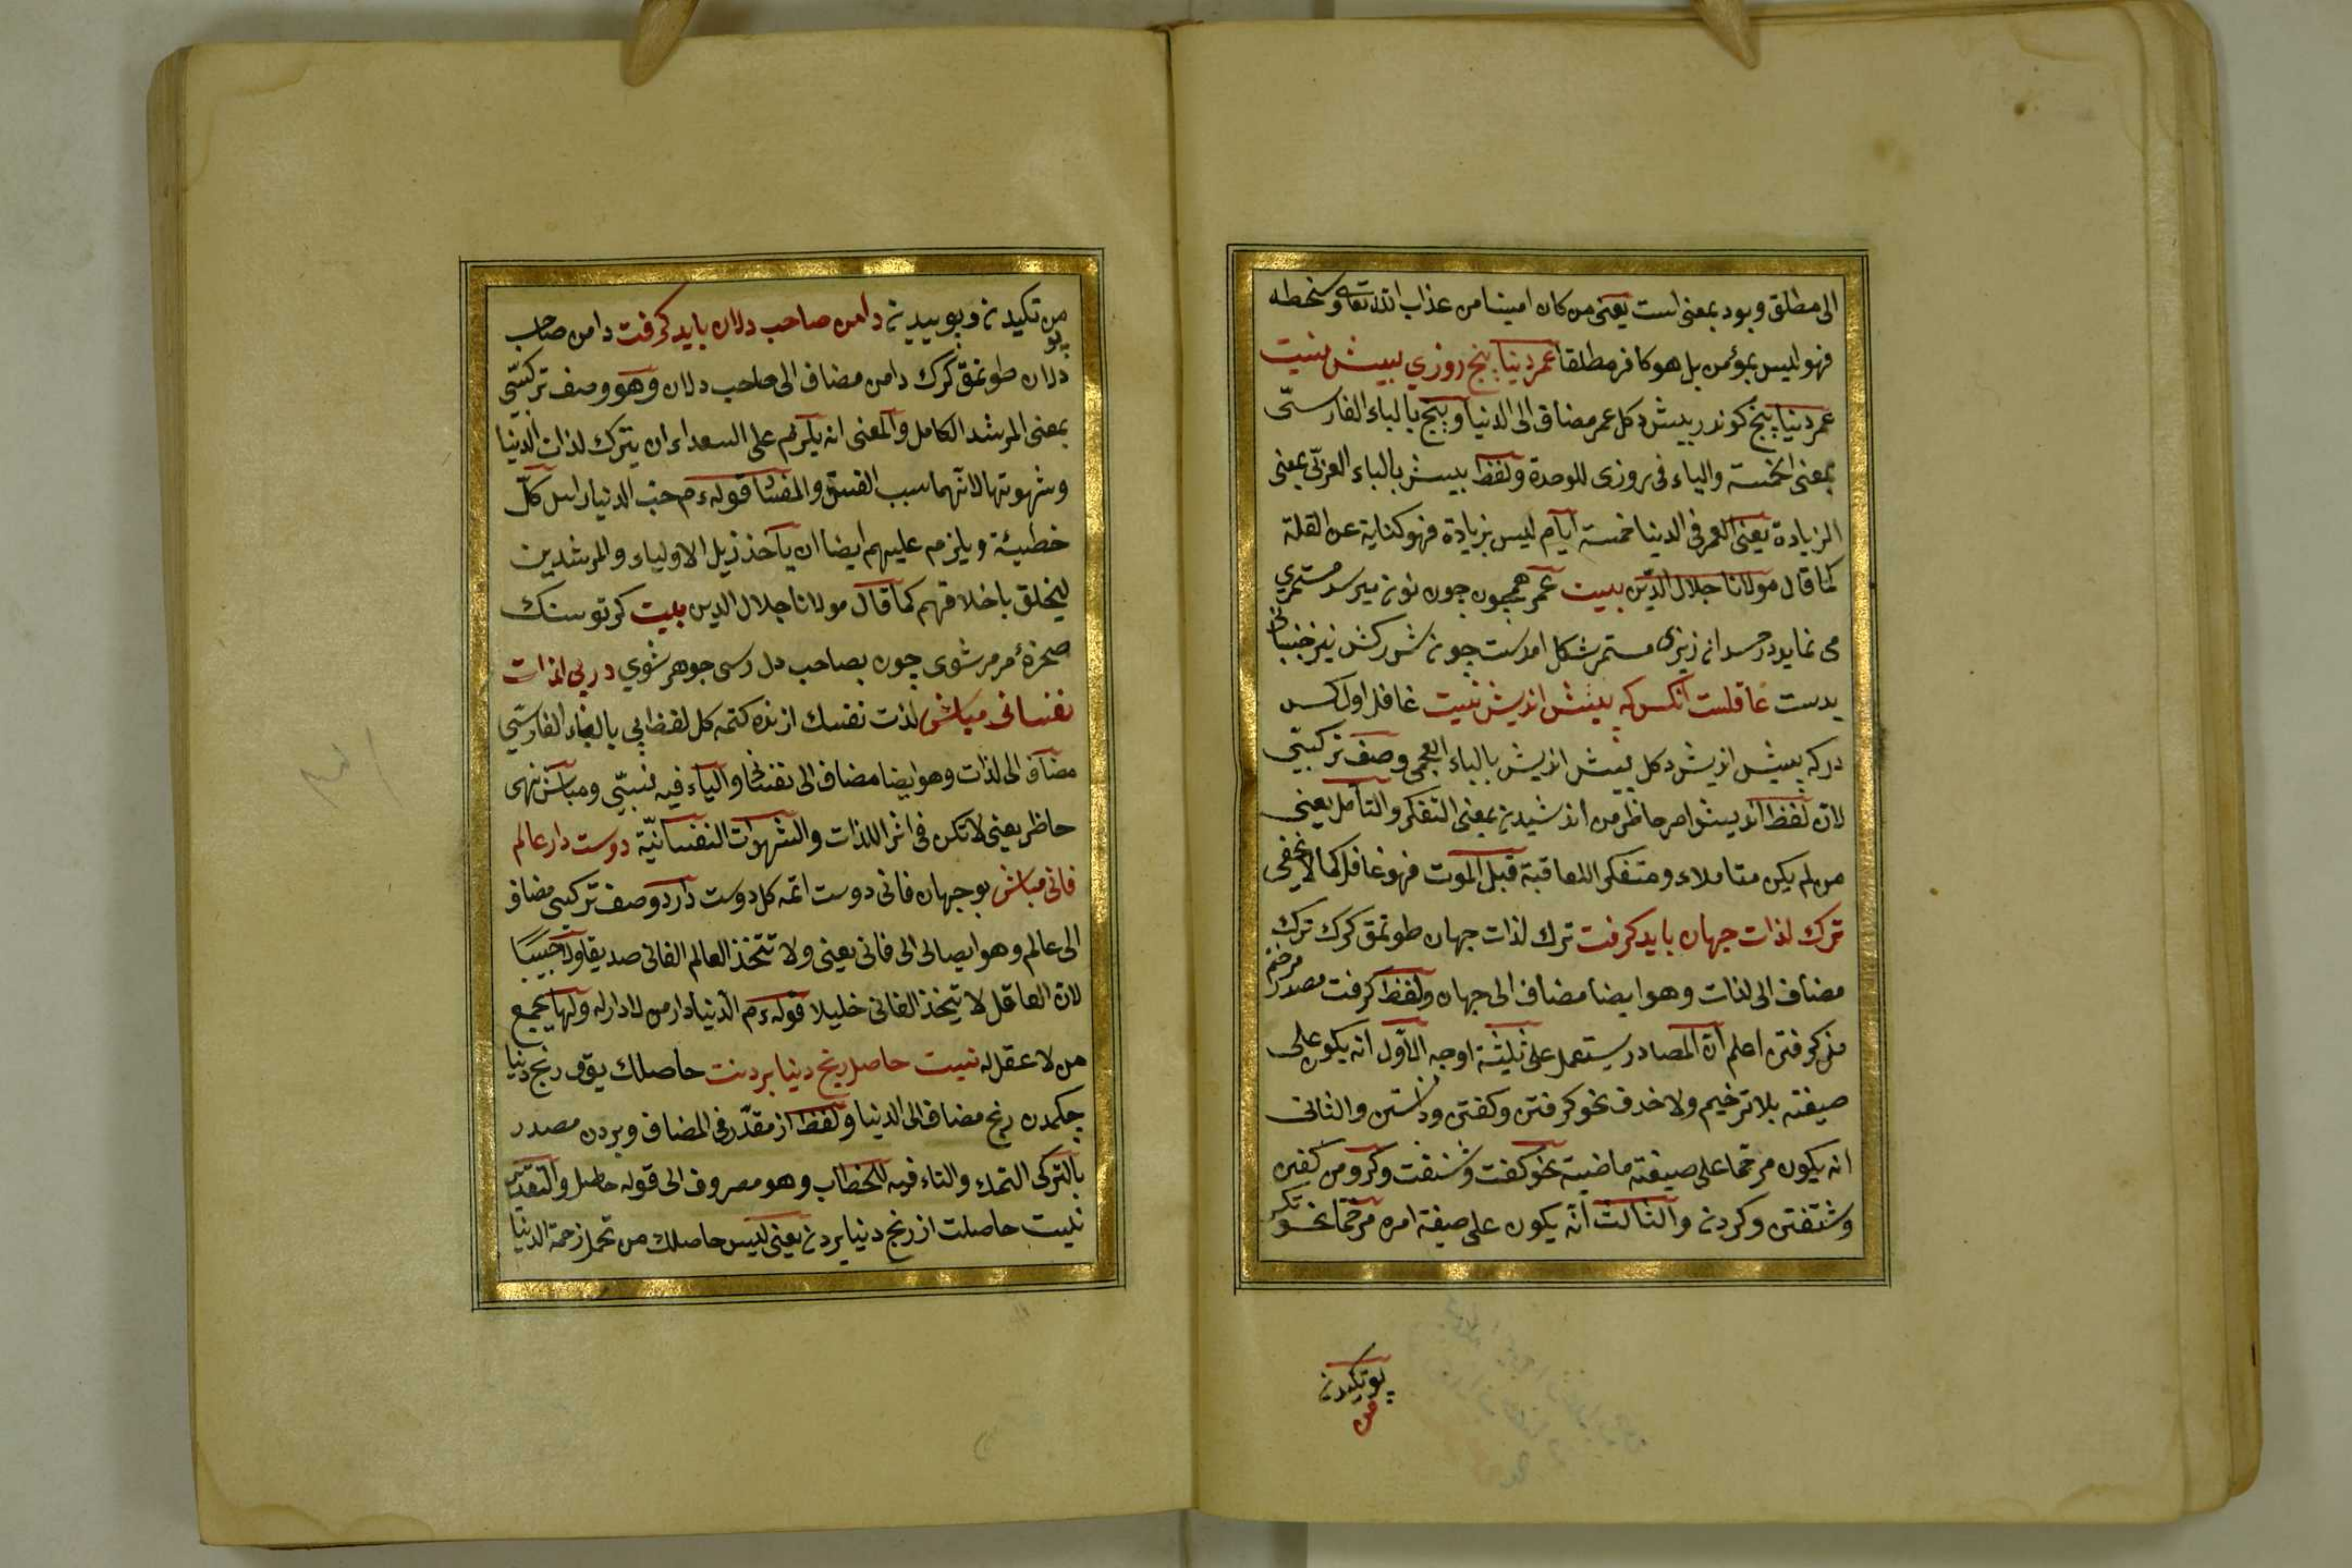 الى مطلق وبود بمعنى است يعنى من كان امينا من عذاب الله تعالى وسخطه
فهو ليس بمؤمن بل هو كافر مطلقا عمر دنيا پنج روزي بيش نيست
عمر دنيا پنج كوندر بيش دكل عمر مضاف الى الدنيا وپنج بالباء الفارسىّ
بمعنى الخمسة والياء فى روزى للوحدة ولفظ بيش بالباء العربّى بمعنى
الزيادة يعنى العمر فى الدنيا خمسة ايام ليس بزيادة فهو كناية عن القلة
كما قال مولانا جلال الدّين بيت عمر همچون جون نو نو ميرسد مستمري
مى نمايد در جسد ان زيزى مستمر شكل امدست چون شرركش نيز جنبانى
بدست غافلست آنكس كه پيش انديش نيست غافل اول كس
دركه پيش انديش دكل پيش انديش بالباء العجمى وصف تركيبّى
لان لفظ انديش امر حاظر من انديشيدن بمعنى التفكر والتأمل يعنى
من لم يكن متاملاء ومتفكر العاقبة قبل الموت فهو غافل كما لا يخفى
ترك لذات جهان بايد كرفت ترك لذات جهان طوتمق كرك ترك
مضاف الى لذات وهو ايضا مضاف الى جهان ولفظ كرفت مصدر مرخم
من كرفتن اعلم ان المصادر يستعمل على ثلثة اوجه الاوّل انه يكون على
صيغته بلا ترخيم ولا حذف نحو كرفتن وكفتن ودانستن والثانى
انه يكون مرخما على صيغته ماضية نحو كفت وشنفت وكرد من كفتن
وشنفتن وكردن والثالث انّه يكون على صيغة امره مرخما نحو تك
پو تكيدن
من
من تكيدن وبوييدن دامن صاحب دلان بايد كرفت دامن صاحب
پو
دلان طوتمق كرك دامن مضاف الى صاحب دلان وهو وصف تركيبّى
بمعنى المرشد الكامل والمعنى انه يلزم على السعداء ان يترك لذات الدنيا
وشهوتها لانهما سبب الفسق والمفسا قوله ءم حب الدنيا راس كلّ
خطيئة ويلزم عليهم ايضا ان يأخذ ذيل الاولياء والمرشدين
ليخلق باخلاقهم كما قال مولانا جلال الدين بيت كر تو سنك
صخرۀ مرمر شوى چون بصاحب دل رسى جوهر شوي در پى لذات
نفسانى مباش لذت نفسك ازنده كتمه كل لفظ پى بالباء الفارسّى
مضاف الى لذات وهو ايضا مضاف الى نفسانى والياء فيه نسبّى ومباش نهى
حاظر يعنى لا تكن فى اثر اللذات والشهوات النفسانيّة دوست دار عالم
فانى مباش بو جهان فانى دوست اتمه كل دوست دار وصف تركيبى مضاف
الى عالم وهو ايضا الى فانى يعنى ولا تتخذ العالم الفانى صديقا ولا حبيبًا
لان العاقل لا يتخذ الفانى خليلا قوله ءم الدنيا دار من لا دار له ولها يجمع
من لا عقل له نيست حاصل رنج دنيا بردنت حاصلك يوق رنج دنيا
چكمدن رنج مضاف الى الدنيا ولفظ از مقدّر فى المضاف وبردن مصدر
بالتركى التمك والتاء فيه للخطاب وهو مصروف الى قوله حاصل والتقدير
نيست حاصلت از رنج دنيا بردن يعنى ليس حاصلك من تحمل زحمة الدنيا